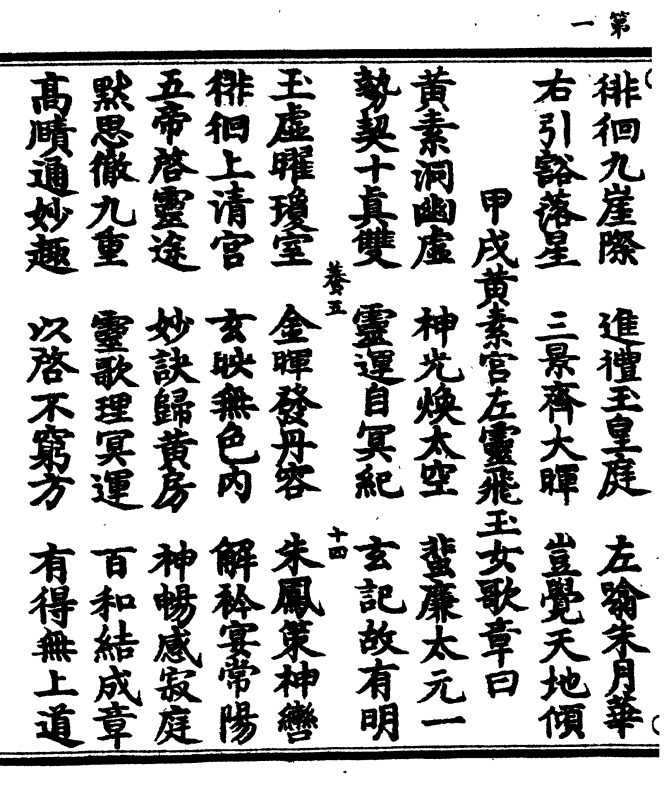 第一
徘徊九崖際 進禮玉皇庭 左噏朱月華
右引豁落星 三景齊大暉 豈覺天地傾
甲戌黃素宮左靈飛玉女歌章曰
黃素洞幽虛 神光煥太空 蜚廉太元一
勢契十真雙 靈運自冥紀 玄記故有明
養五 十四
玉虛曜瓊室 金暉發丹容 朱鳳策神轡
徘徊上清宮 玄映無色內 解衿宴常陽
五帝啓靈途 妙訣歸黃房 神暢感寂庭
默思徹九重 靈歌理冥運 百和結成章
高賾通妙趣 以啓不窮方 有得無上道